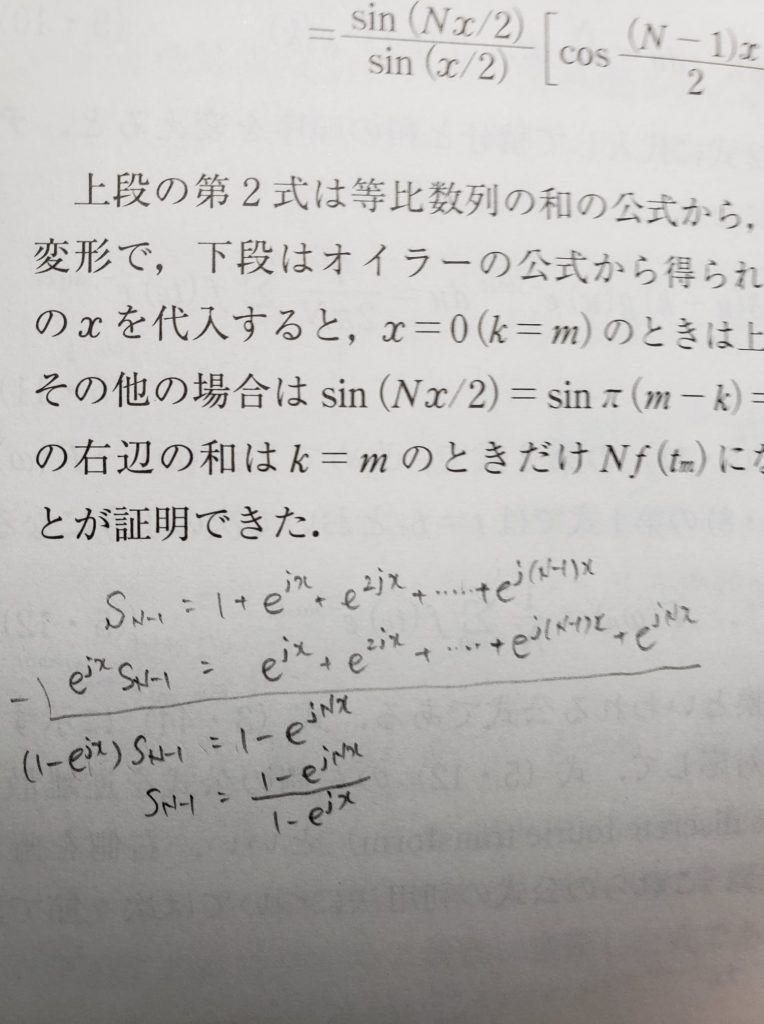 = sin (Nx/2) / sin (x/2) [cos (N − 1)x / 2
上段の第2式は等比数列の和の公式から，
変形で，下段はオイラーの公式から得られ
のxを代入すると，x＝0(k＝m)のときは上
その他の場合は sin (Nx/2)＝sin π(m−k)＝
の右辺の和はk＝mのときだけNf(tm)にな
とが証明できた．
S_{N-1} = 1 + e^{jx} + e^{2jx} + ..... + e^{j(N-1)x}
e^{jx} S_{N-1} = e^{jx} + e^{2jx} + ..... + e^{j(N-1)x} + e^{jNx}
(1-e^{jx}) S_{N-1} = 1 - e^{jNx}
S_{N-1} = 1 - e^{jNx} / 1 - e^{jx}